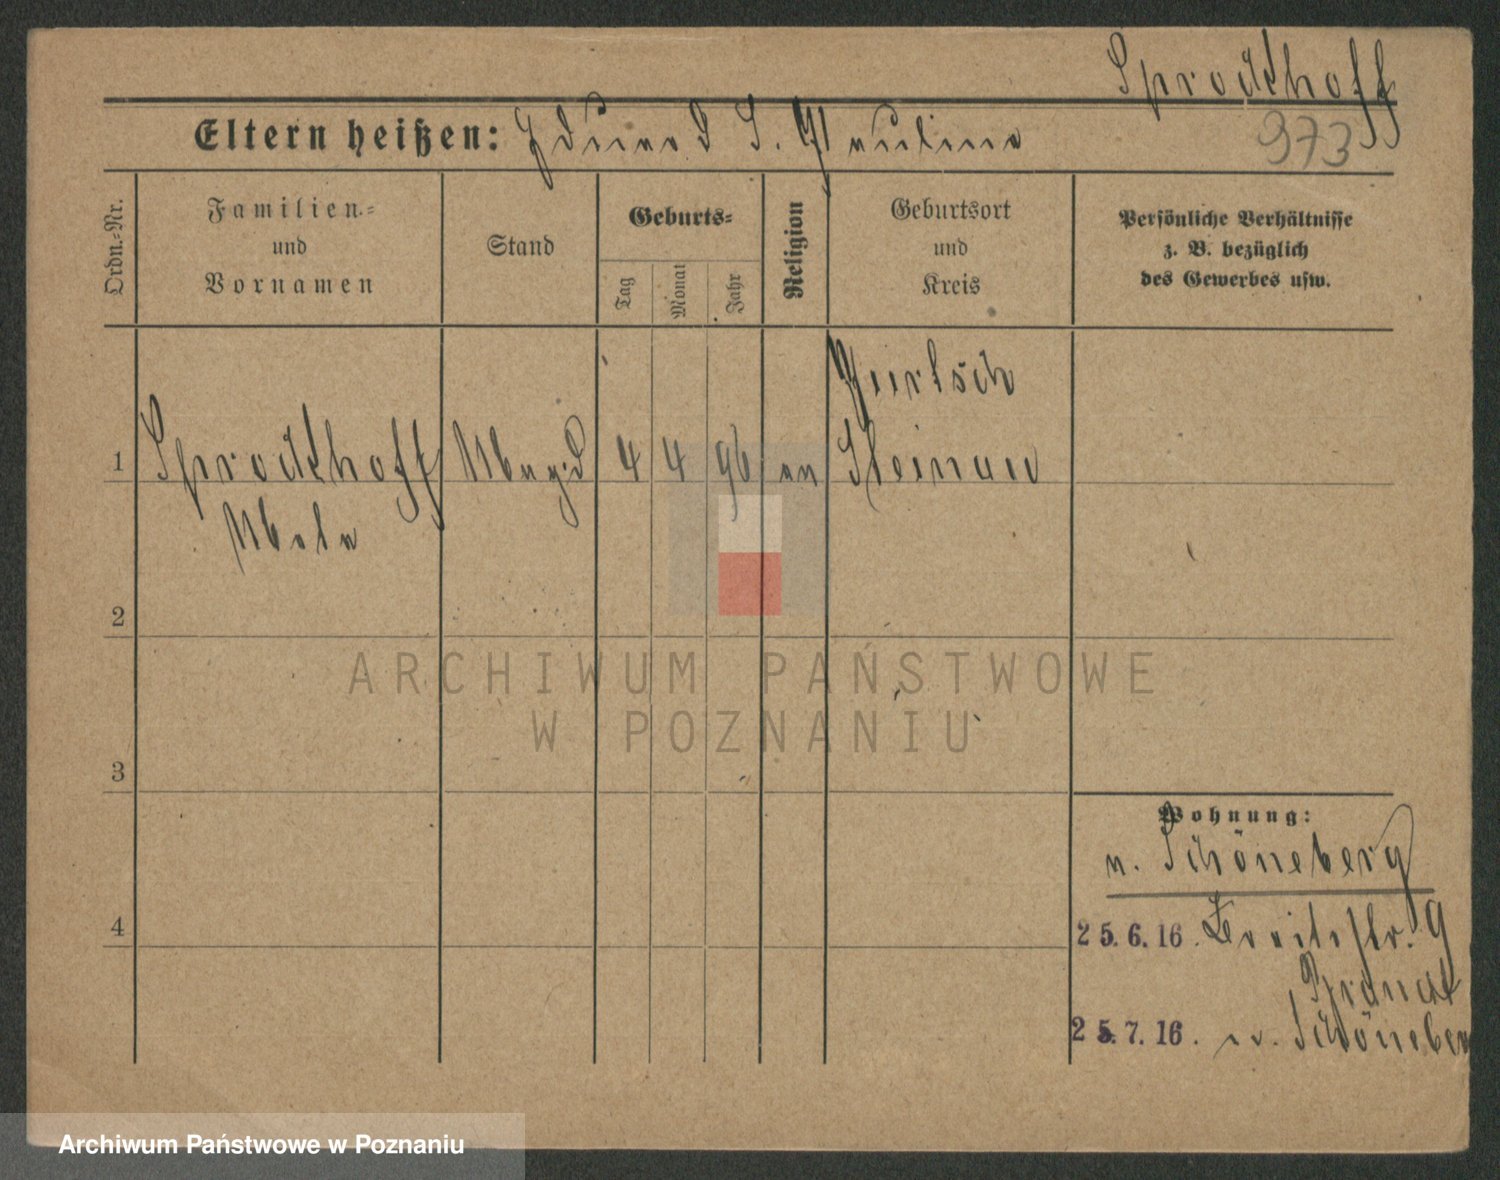 Sprockhoff
Eltern heißen: Eduard S. Pauline
973
Ordn.-Nr.
Familien-
und
Vornamen
Stand
Geburts-
Tag
Monat
Jahr
Religion
Geburtsort
und
Kreis
Persönliche Verhältnisse
z. B. bezüglich
des Gewerbes usw.
1
Sprockhoff
Magd
4
4
96
ev
Steinau
2
3
4
Wohnung:
n. Schöneberg
25.6.16. Breitestr. 9
25.7.16. n. Schöneberg
ARCHIWUM PAŃSTWOWE
W POZNANIU
Archiwum Państwowe w Poznaniu